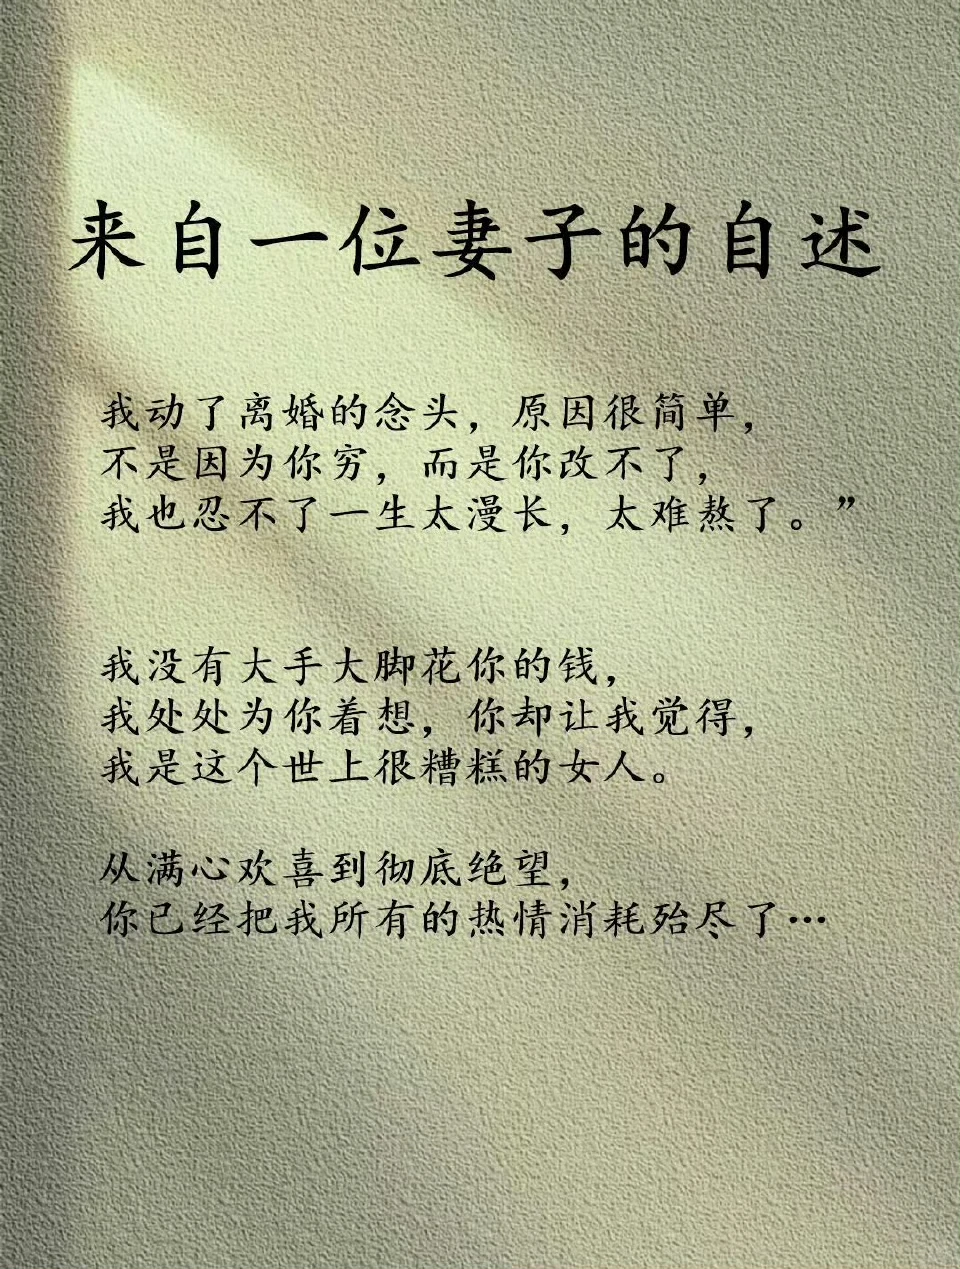 来自一位妻子的自述
我动了离婚的念头，原因很简单，
不是因为你穷，而是你改不了，
我也忍不了一生太漫长，太难熬了。”
我没有大手大脚花你的钱，
我处处为你着想，你却让我觉得，
我是这个世上很糟糕的女人。
从满心欢喜到彻底绝望，
你已经把我所有的热情消耗殆尽了…